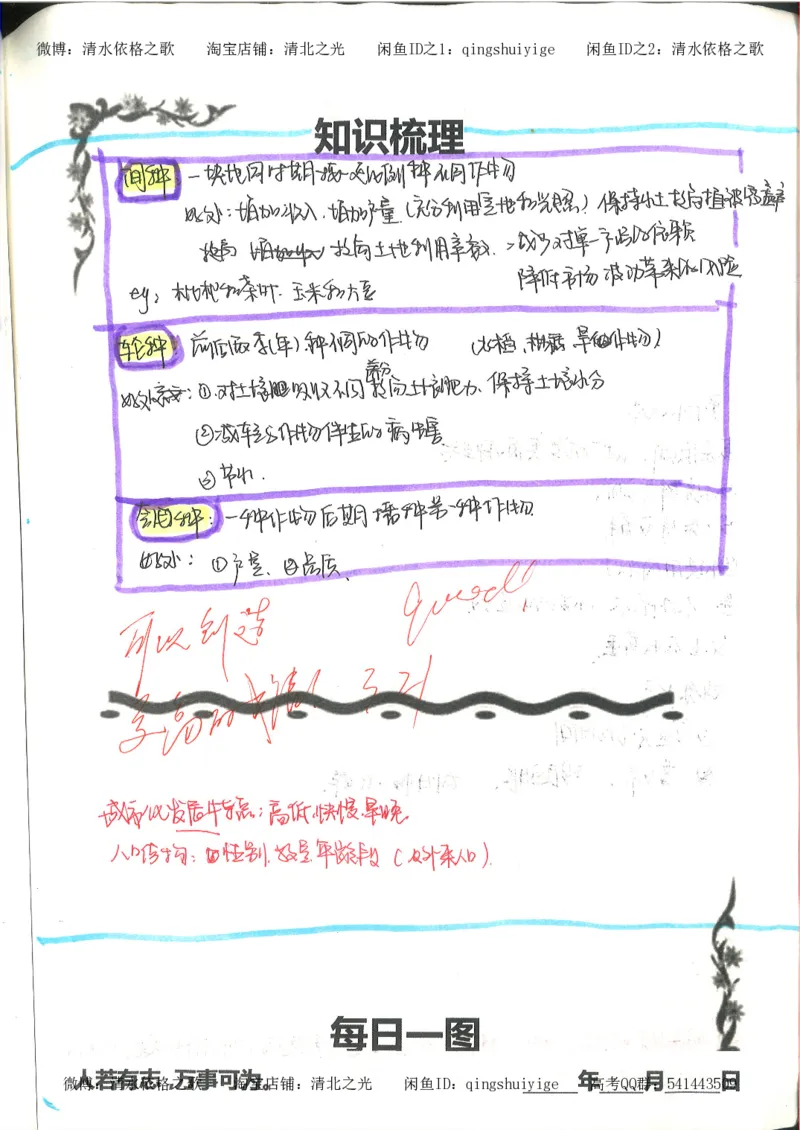 微博：清水依格之歌 淘宝店铺：清北之光 闲鱼ID之1：qingshuiyige 闲鱼ID之2：清水依格之歌
知识梳理
间种 一块地同时期 种不同作物
好处：增加收入，增加产量（充分利用土地和光照）保持水土 提高植被覆盖率
提高土地利用率 减少对单一产品的依赖
降低市场波动带来的风险
eg, 枇杷和茶叶、玉米和大豆
轮种 前后两季(年)种不同的作物 （水稻，柑橘，旱作物）
好处：①对土壤吸收不同养分 提高土壤肥力、保持土壤水分
②减轻与作物伴生的病虫害
③节水.
套种：一种作物后期播种另一种作物
好处：①产量、②品质、
可以创造
good!
更高的
城市化发展特点：高低，快慢，早晚
人口结构：性别，数量，年龄段（外来人口）.
每日一图
人若有志，万事可为。
微博：清水依格之歌 淘宝店铺：清北之光 闲鱼ID：qingshuiyige 高考QQ群：541443509
年 月 日